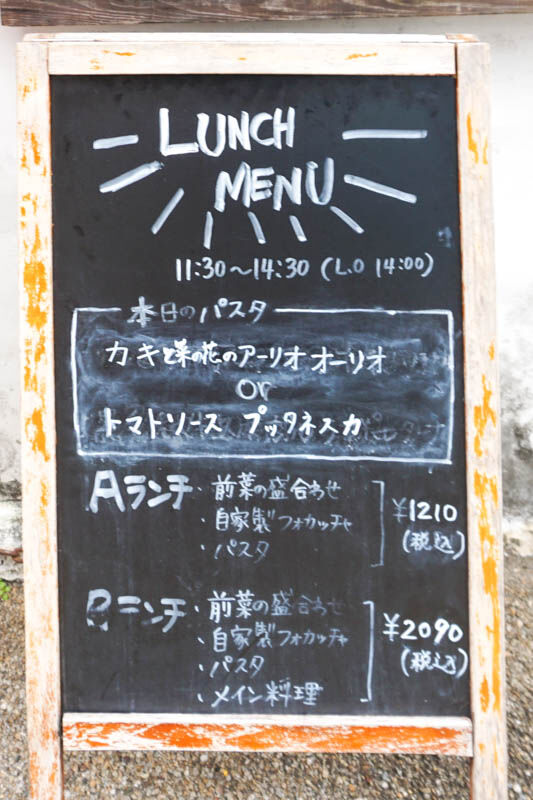 LUNCH
MENU
11:30～14:30 (L.O 14:00)
本日のパスタ
カキと菜の花のアーリオオーリオ
or
トマトソース プッタネスカ
Aランチ・前菜の盛合わせ
・自家製フォカッチャ
・パスタ
¥1210
(税込)
Bランチ・前菜の盛合わせ
・自家製フォカッチャ
・パスタ
・メイン料理
¥2090
(税込)